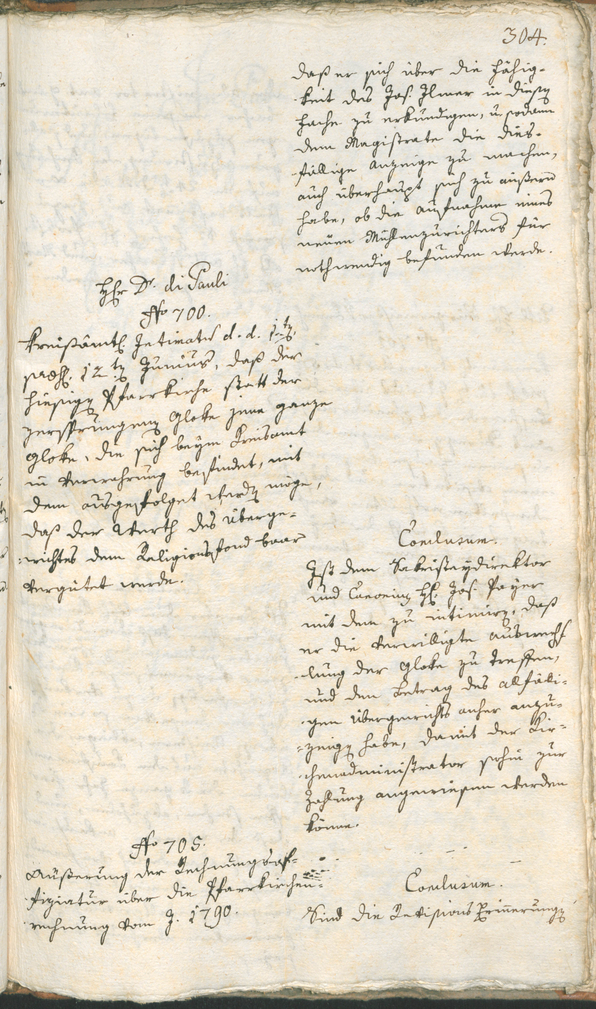 304.
daß er sich über die Fähig-
keit des Jos. Ilmer in dieser
Sache zu erkundigen, u. sodann
dem Magistrate die dies-
fällige Anzeige zu machen,
auch überhaupt sich zu äußern
habe, ob die Aufnahme eines
neuen Mühlenzurichters für
nothwendig befunden werde.
H. Dr. di Pauli
No 700.
Kreisämtl. Intimatum d. d. 1ten
12ten Junius, daß der
hiesigen Pfarrkirche statt der
zersprungenen Gloke jene ganze
Gloke, die sich beym Kreisamt
in Verwahrung befindet, mit
dem ausgefolget werden möge,
daß der Werth des Überge-
wichtes dem Religionsfond baar
vergütet werde.
Conclusum.
Ist dem Sakristeydirektor
und Jos. Payer
mit dem zu intimiren, daß
er die verwilligte Auswechs-
lung der Gloke zu treffen,
und den Betrag des allfälli-
gen Übergewichts anher anzu-
zeigen habe, damit der Kir-
chenadministrator sohin zur
Zahlung angewiesen werden
könne.
No 705.
Äußerung der Rechnungsof-
fiziatur über die Pfarrkirchen-
rechnung vom J. 1790.
Conclusum.
Sind die Revisions Erinnerungen